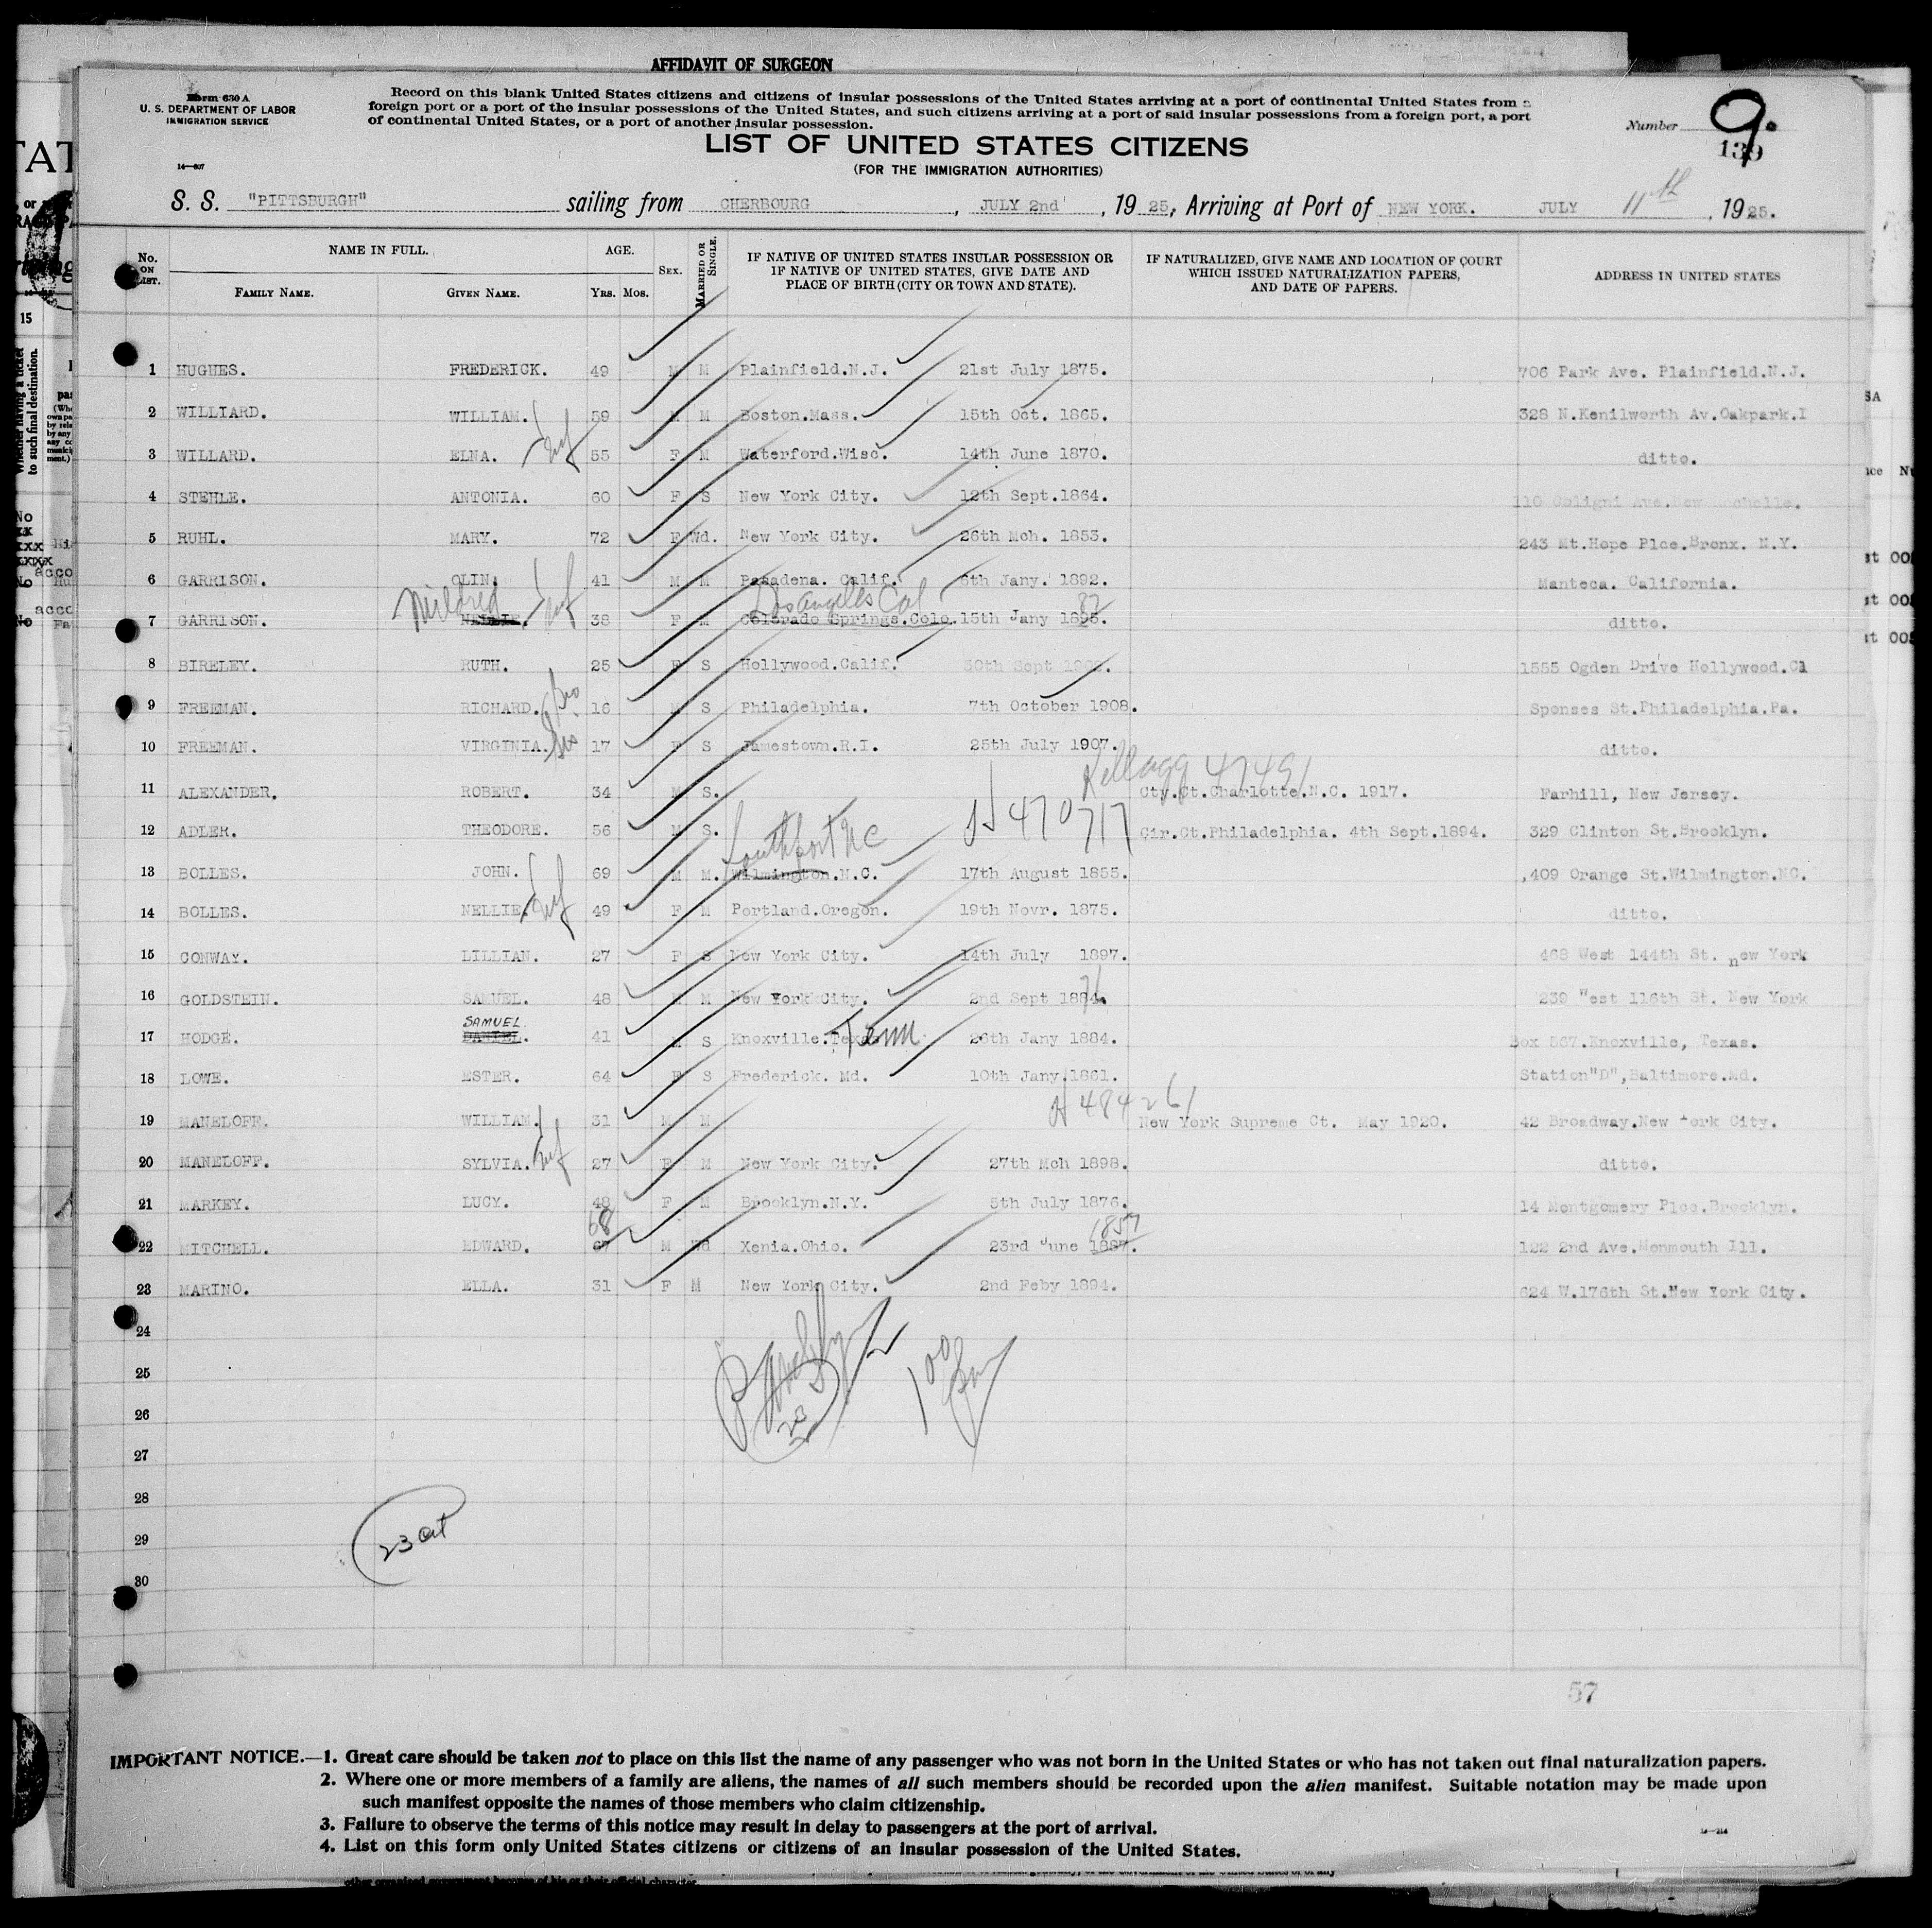 AFFIDAVIT OF SURGEON
Form 630 A
U. S. DEPARTMENT OF LABOR
IMMIGRATION SERVICE
14—607
Record on this blank United States citizens and citizens of insular possessions of the United States arriving at a port of continental United States from a
foreign port or a port of the insular possessions of the United States, and such citizens arriving at a port of said insular possessions from a foreign port, a port
of continental United States, or a port of another insular possession.
Number 9.
139
LIST OF UNITED STATES CITIZENS
(FOR THE IMMIGRATION AUTHORITIES)
S. S. "PITTSBURGH" sailing from CHERBOURG, JULY 2nd, 1925, Arriving at Port of NEW YORK. JULY 11th, 1925.
No. ON LIST. NAME IN FULL. AGE. SEX. MARRIED OR SINGLE. IF NATIVE OF UNITED STATES INSULAR POSSESSION OR IF NATIVE OF UNITED STATES, GIVE DATE AND PLACE OF BIRTH (CITY OR TOWN AND STATE). IF NATURALIZED, GIVE NAME AND LOCATION OF COURT WHICH ISSUED NATURALIZATION PAPERS, AND DATE OF PAPERS. ADDRESS IN UNITED STATES
FAMILY NAME. GIVEN NAME. YRS. MOS.
1 HUGHES. FREDERICK. 49 M M Plainfield.N.J. 21st July 1875. 706 Park Ave. Plainfield.N.J.
2 WILLIARD. WILLIAM. 59 M M Boston.Mass. 15th Oct. 1865. 328 N.Kenilworth Av.Oakpark.I
3 WILLARD. ELNA. wf 55 F M Waterford.Wisc. 14th June 1870. ditto.
4 STEHLE. ANTONIA. 60 F S New York City. 12th Sept.1864. 110 Coligni Ave.New Rochelle.
5 RUHL. MARY. 72 F Wd. New York City. 26th Mch. 1853. 243 Mt.Hope Plce.Bronx. N.Y.
6 GARRISON. OLIN. 41 M M Pasadena. Calif. 6th Jany. 1892. Manteca. California.
Mildred wf Los Angeles Cal 87
7 GARRISON. NELLIE. 38 F M Colorado Springs.Colo. 15th Jany 1895. ditto.
8 BIRELEY. RUTH. 25 F S Hollywood.Calif. 30th Sept 1902. 1555 Ogden Drive Hollywood.Cl
9 FREEMAN. RICHARD. bro 16 M S Philadelphia. 7th October 1908. Sponses St.Philadelphia.Pa.
10 FREEMAN. VIRGINIA. Sis 17 F S Jamestown.R.I. 25th July 1907. ditto.
Kellogg 47491
11 ALEXANDER. ROBERT. 34 M S. Cty.Ct.Charlotte.N.C. 1917. Farhill, New Jersey.
12 ADLER. THEODORE. 56 M S. H 470717 Cir.Ct.Philadelphia. 4th Sept.1894. 329 Clinton St.Brooklyn.
Southport N C
13 BOLLES. JOHN. 69 M M. Wilmington.N.C. 17th August 1855. ,409 Orange St.Wilmington.NC.
14 BOLLES. NELLIE. wf 49 F M Portland.Oregon. 19th Novr. 1875. ditto.
15 CONWAY. LILLIAN. 27 F S New York City. 14th July 1897. 468 West 144th St. new York
76
16 GOLDSTEIN. SAMUEL. 48 M M New York City. 2nd Sept 1884. 239 "est 116th St. New York
SAMUEL
17 HODGE. DANIEL. 41 M S Knoxville.Texas Tenn. 26th Jany 1884. Box 567.Knoxville, Texas.
18 LOWE. ESTER. 64 F S Frederick. Md. 10th Jany.1861. Station"D",Baltimore.Md.
H 484261
19 MANELOFF. WILLIAM. 31 M M New York Supreme Ct. May 1920. 42 Broadway.New York City.
20 MANELOFF. SYLVIA. wf 27 F M New York City. 27th Mch 1898. ditto.
21 MARKEY. LUCY. 48 F M Brooklyn.N.Y. 5th July 1876. 14 Montgomery Plce.Brooklyn.
68 1857
22 MITCHELL. EDWARD. 67 M Wd Xenia.Ohio. 23rd June 1887. 122 2nd Ave.Monmouth Ill.
23 MARINO. ELLA. 31 F M New York City. 2nd Feby 1894. 624 W.176th St.New York City.
24
25
26
27
28
29
30
23
23 cit
57
IMPORTANT NOTICE.—1. Great care should be taken not to place on this list the name of any passenger who was not born in the United States or who has not taken out final naturalization papers.
2. Where one or more members of a family are aliens, the names of all such members should be recorded upon the alien manifest. Suitable notation may be made upon
such manifest opposite the names of those members who claim citizenship.
3. Failure to observe the terms of this notice may result in delay to passengers at the port of arrival.
4. List on this form only United States citizens or citizens of an insular possession of the United States.